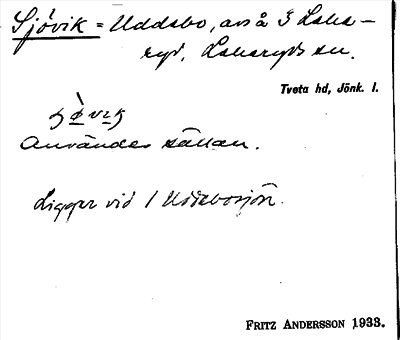 Sjövik = Uddabo, avs å 3 Laka-
ryd. Lakaryds sn.
Tveta hd, Jönk. l.
Användes sällan.
Ligger vid / Uddabosjön.
FRITZ ANDERSSON 1933.